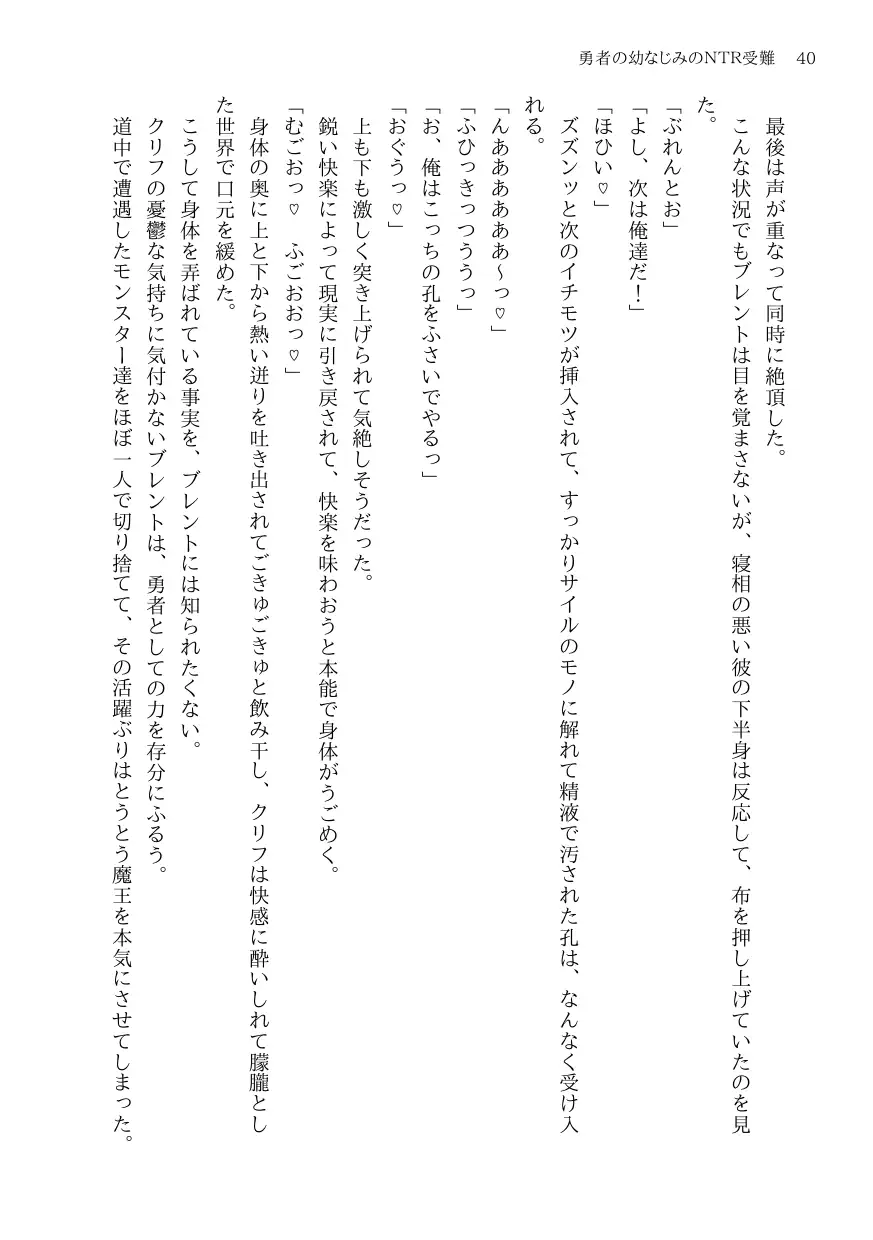 勇者の幼なじみのNTR受難 40
最後は声が重なって同時に絶頂した。
こんな状況でもブレントは目を覚まさないが、寝相の悪い彼の下半身は反応して、布を押し上げていたのを見
た。
「ぶれんとお」
「よし、次は俺達だ!」
「ほひい♡」
ズズンッと次のイチモツが挿入されて、すっかりサイルのモノに解れて精液で汚された孔は、なんなく受け入
れる。
「んああああああ~っ♡」
「ふひっきっつううっ」
「お、俺はこっちの孔をふさいでやるっ」
「おぐうっ♡」
上も下も激しく突き上げられて気絶しそうだった。
鋭い快楽によって現実に引き戻されて、快楽を味わおうと本能で身体がうごめく。
「むごおっ♡ ふごおおっ♡」
身体の奥に上と下から熱い迸りを吐き出されてごきゅごきゅと飲み干し、クリフは快感に酔いしれて朦朧とし
た世界で口元を緩めた。
こうして身体を弄ばれている事実を、ブレントには知られたくない。
クリフの憂鬱な気持ちに気付かないブレントは、勇者としての力を存分にふるう。
道中で遭遇したモンスター達をほぼ一人で切り捨てて、その活躍ぶりはとうとう魔王を本気にさせてしまった。